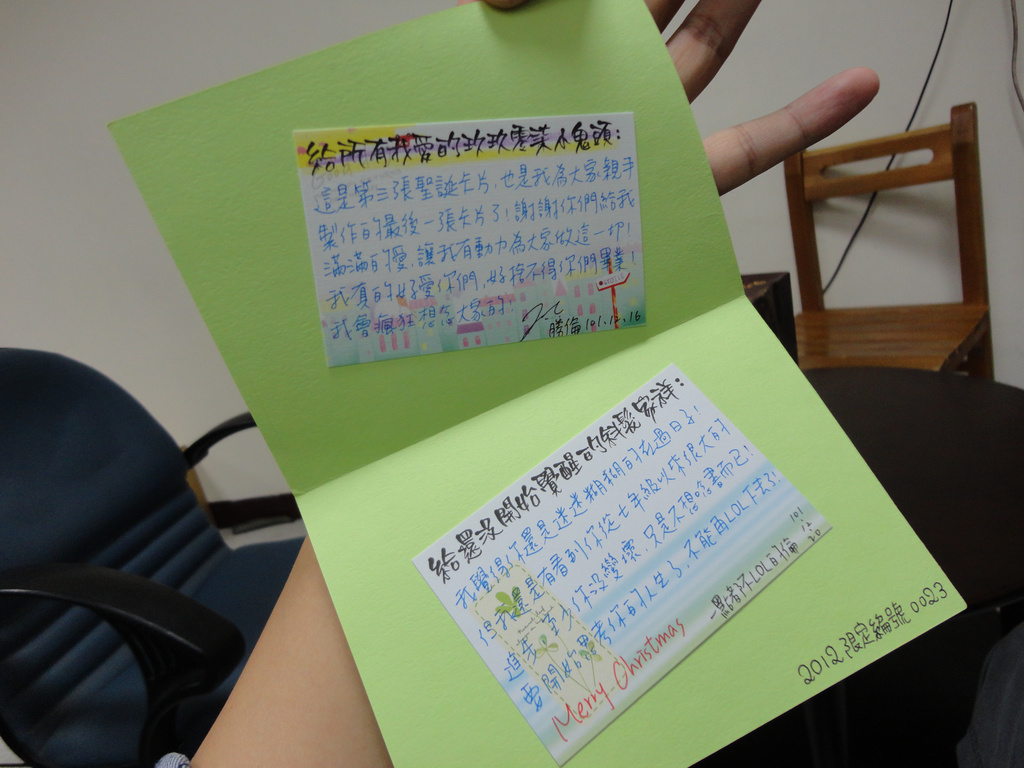 給所有我愛的玖玖零柒小鬼頭：
這是第三張聖誕卡片，也是我為大家親手
製作的最後一張卡片了！謝謝你們給我
滿滿的愛，讓我有動力為大家做這一切！
我真的好愛你們，好捨不得你們畢業！
我會瘋狂想念大家的！
勝倫 101.12.16
給還沒開始覺醒的斜髮家祥：
我覺得你還是迷迷糊糊的在過日子！
但我還是有看到你從七年級以來很大的
進步，至少你沒變壞，只是不想唸書而已！
要開始思考你的人生了，不能再LOL下去了！
Merry Christmas
一點都不LOL的倫 101.12.20
2012 限定編號 0023